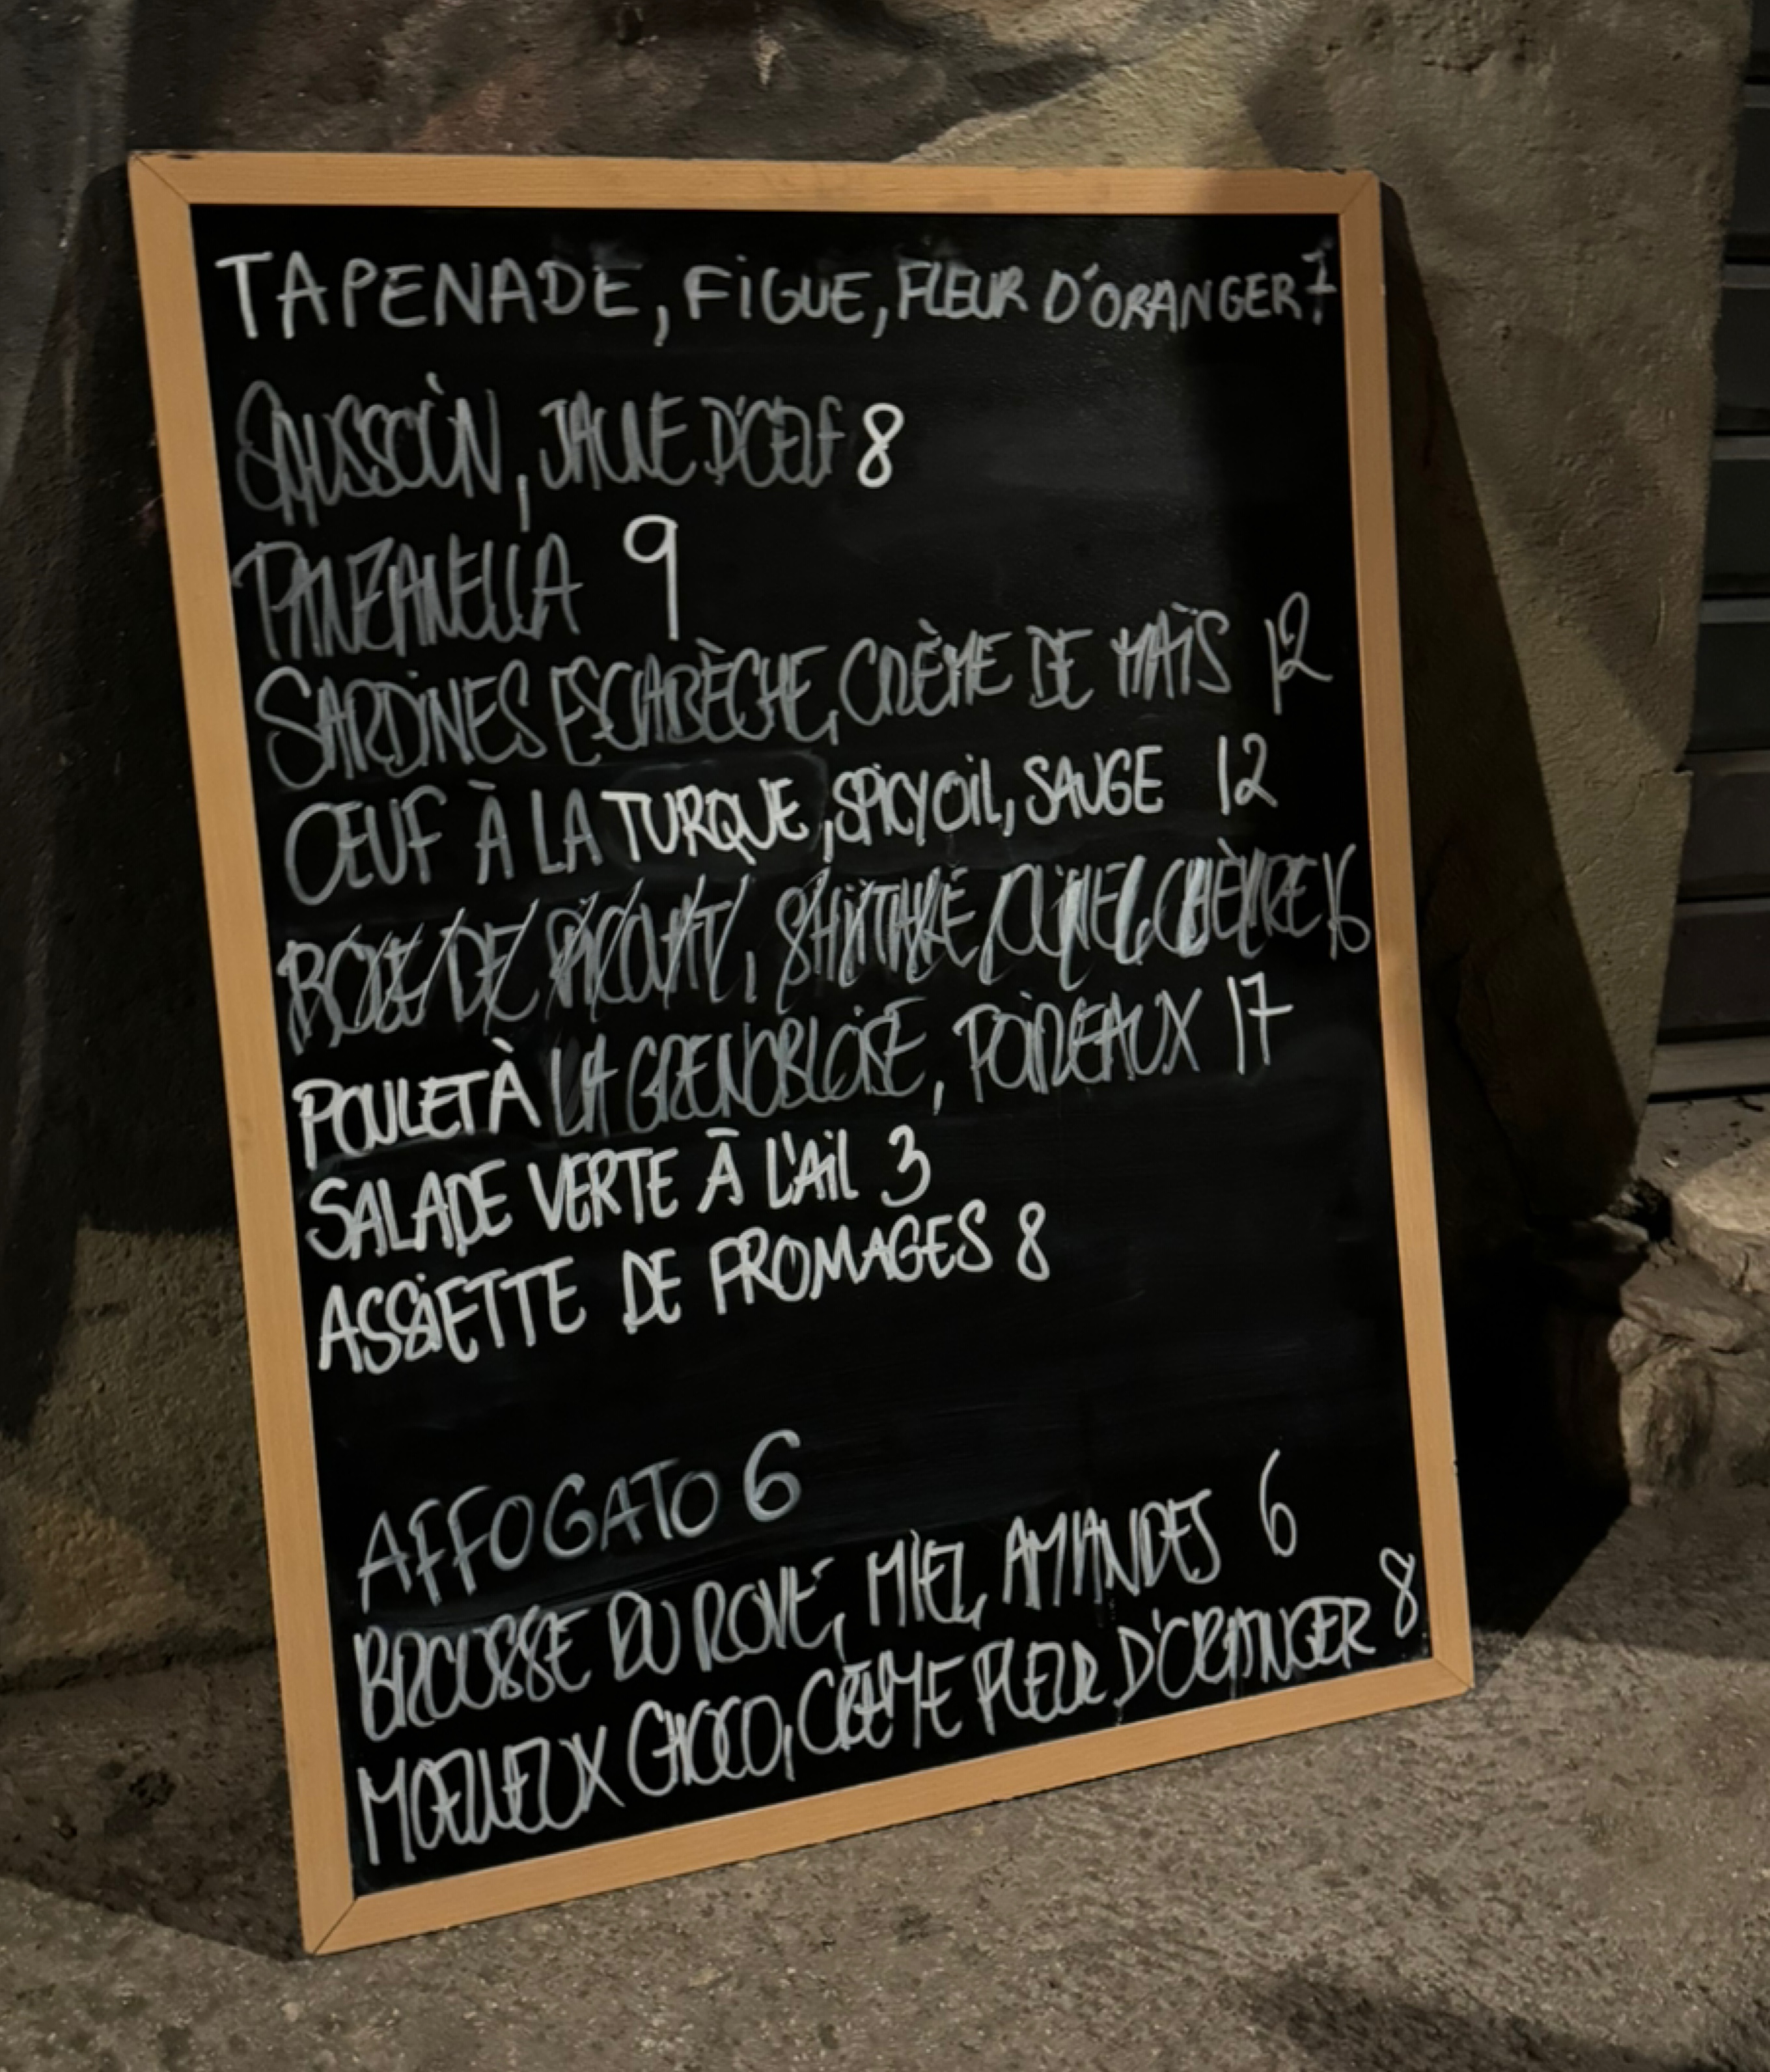 TAPENADE, FIGUE, FLEUR D'ORANGER 7
SAUSSOÙN, JAUNE D'ŒUF 8
PANZANELLA 9
SARDINES ESCABÈCHE, CRÈME DE MAÏS 12
ŒUF À LA TURQUE, SPICY OIL, SAUGE 12
DE SHIITAKÉ, CHÈVRE 16
POULET À LA GRENOBLOISE, POIREAUX 17
SALADE VERTE À L'AIL 3
ASSIETTE DE FROMAGES 8
AFFOGATO 6
BROUSSE DU ROVE, MIEL, AMANDES 6
MOELLEUX CHOCO, CRÈME FLEUR D'ORANGER 8